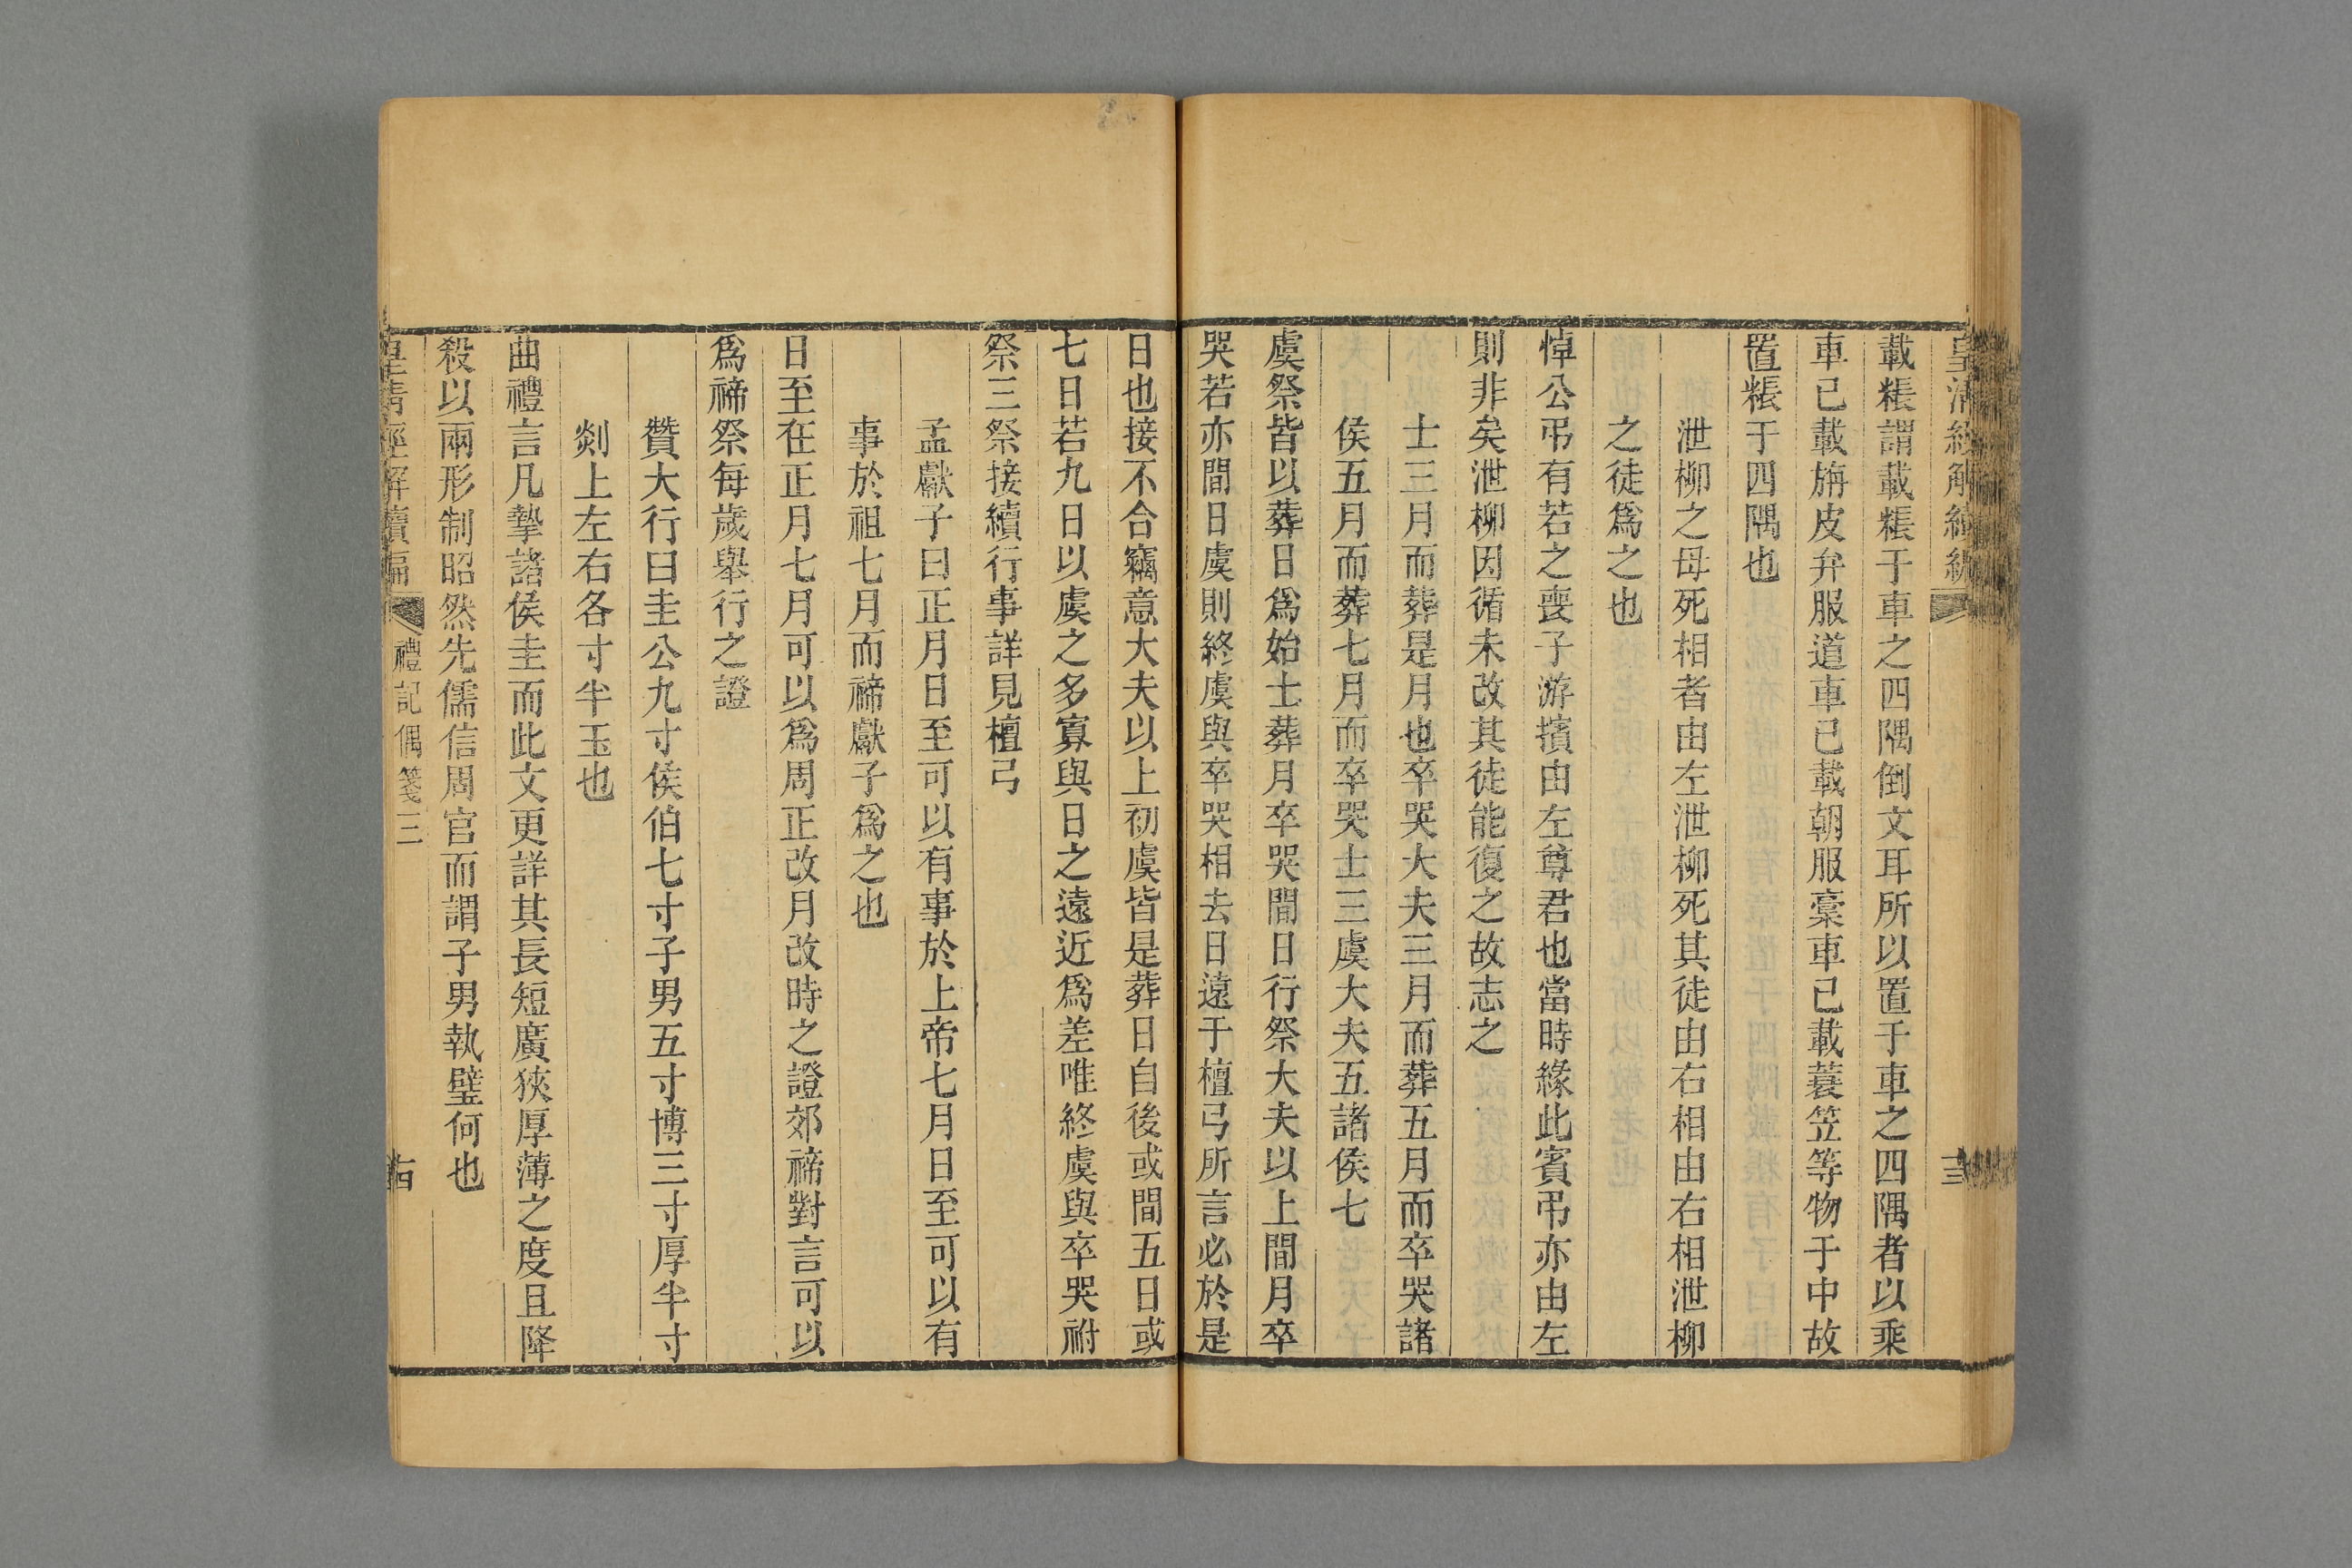 載粻謂載粻于車之四隅倒文耳所以置于車之四隅者以乘
車已載旃皮弁服道車已載朝服槀車已載蓑笠等物于中故
置粻于四隅也
泄柳之母死相者由左泄柳死其徒由右相由右相泄柳
之徒爲之也
悼公弔有若之喪子游擯由左尊君也當時緣此賓弔亦由左
則非矣泄柳因循未改其徒能復之故志之
士三月而葬是月也卒哭大夫三月而葬五月而卒哭諸
侯五月而葬七月而卒哭士三虞大夫五諸侯七
虞祭皆以葬日爲始士葬月卒哭間日行祭大夫以上間月卒
哭若亦間日虞則終虞與卒哭相去日遠于檀弓所言必於是
日也接不合竊意大夫以上初虞皆是葬日自後或間五日或
七日若九日以虞之多寡與日之遠近爲差唯終虞與卒哭祔
祭三祭接續行事詳見檀弓
孟獻子曰正月日至可以有事於上帝七月日至可以有
事於祖七月而禘獻子爲之也
日至在正月七月可以爲周正改月改時之證郊禘對言可以
爲禘祭每歲舉行之證
贊大行曰圭公九寸侯伯七寸子男五寸博三寸厚半寸
剡上左右各寸半玉也
曲禮言凡摯諸侯圭而此文更詳其長短廣狹厚薄之度且降
殺以兩形制昭然先儒信周官而謂子男執璧何也
皇清經解續編 禮記偶箋三